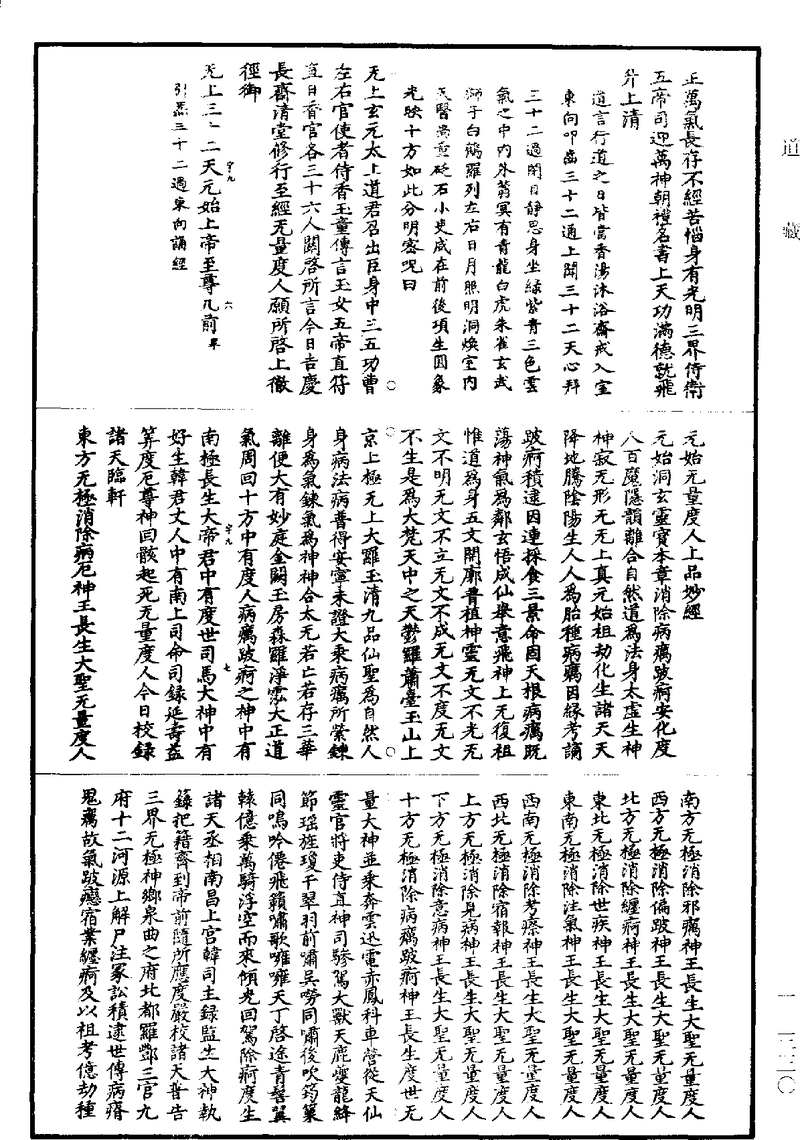 正萬氣長存不經苦惱身有光明三界侍衛
五帝司迎萬神朝禮名書上天功滿德就飛
升上清
道言行道之日皆當香湯沐浴齋戒入室
東向叩齒三十二通上聞三十二天心拜
三十二過閉目靜思身坐綠紫青三色雲
氣之中內外蓊冥有青龍白虎朱雀玄武
獅子白鶴羅列左右日月照明洞煥室內
天醫尚藥砭石小吏咸在前後項生圓象
光映十方如此分明密呪曰
无上玄元太上道君召出臣身中三五功曹
左右官使者侍香玉童傳言玉女五帝直符
直日香官各三十六人關啓所言今日吉慶
長齋清堂修行至經无量度人願所啓上徹
徑御
无上三十二天元始上帝至尊几前
引炁三十二過東向誦經
元始无量度人上品妙經
元始洞玄靈寶本章消除病癘跛痾安化度
八百魔隱韻離合自然道為法身太虛生神
神寂无形无无上真元始祖劫化生諸天天
降地騰陰陽生人人為胎種病癘因緣考謫
跛痾積逮因連採食三景命固天根病癘既
蕩神氣為鄰玄悟成仙舉意飛神上无復祖
惟道為身五文開廓普植神靈无文不光无
文不明无文不立无文不成无文不度无文
不生是為大梵天中之天鬱羅蕭臺玉山上
京上極无上大羅玉清九品仙聖為自然人
身病法病普得安寧未證大乘病癘所縈鍊
身為氣鍊氣為神神合太无若亡若存三華
離便大有妙庭金闕玉房森羅淨泓大正道
氣周回十方中有度人病癘跛痾之神中有
南極長生大帝君中有度世司馬大神中有
好生韓君丈人中有南上司命司錄延壽益
筭度厄尊神回骸起死无量度人今日校錄
諸天臨軒
東方无極消除病厄神王長生大聖无量度人
南方无極消除邪癘神王長生大聖无量度人
西方无極消除偏跛神王長生大聖无量度人
北方无極消除纏痾神王長生大聖无量度人
東北无極消除世疾神王長生大聖无量度人
東南无極消除注氣神王長生大聖无量度人
西南无極消除考瘵神王長生大聖无量度人
西北无極消除宿報神王長生大聖无量度人
上方无極消除見病神王長生大聖无量度人
下方无極消除意病神王長生大聖无量度人
十方无極消除病癘跛痾神王長生度世无
量大神並乘奔雲迅電赤鳳科車營從天仙
靈官將吏侍直神司驂駕大獸天鹿夔龍絳
節瑤旌瓊干翠羽前嘯吳嘮同嘯後吹筠篥
同鳴吟僊飛籟嘯歌嗺嗺天丁啓途青鸞翼
轅億乘萬騎浮空而來傾光回駕除痾度生
諸天丞相南昌上宮韓司主錄監生大神執
籙把籍齊到帝前隨所應度嚴校諸天普告
三界无極神鄉泉曲之府北都羅酆三官九
府十二河源上解尸注冢訟積逮世傳病瘠
鬼癘故氣跛癋宿業纏痾及以祖考億劫種
道藏
一一三三〇